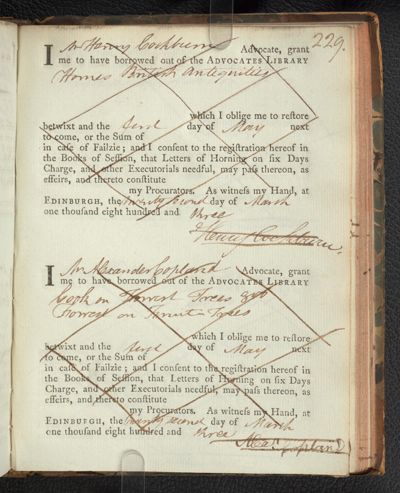 229.
I Mr Henry Cockburn Advocate, grant
me to have borrowed out of the ADVOCATES LIBRARY
Homes British Antiquities
which I oblige me to reſtore
betwixt and the day of May next
to come, or the Sum of
in caſe of Failzie; and I conſent to the regiſtration hereof in
the Books of Seſſion, that Letters of Horning on ſix Days
Charge, and other Executorials needful, may paſs thereon, as
effeirs, and thereto conſtitute
my Procurators. As witneſs my Hand, at
EDINBURGH, the twenty second day of March
one thouſand eight hundred and three
Henry Cockburn.
I Mr Alexander Copland Advocate, grant
me to have borrowed out of the ADVOCATES LIBRARY
Cook on Forrest Trees
on Trees
which I oblige me to reſtore
betwixt and the day of May next
to come, or the Sum of
in caſe of Failzie; and I conſent to the regiſtration hereof in
the Books of Seſſion, that Letters of Horning on ſix Days
Charge, and other Executorials needful, may paſs thereon, as
effeirs, and thereto conſtitute
my Procurators. As witneſs my Hand, at
EDINBURGH, the twenty second day of March
one thouſand eight hundred and three
Alex: Copland